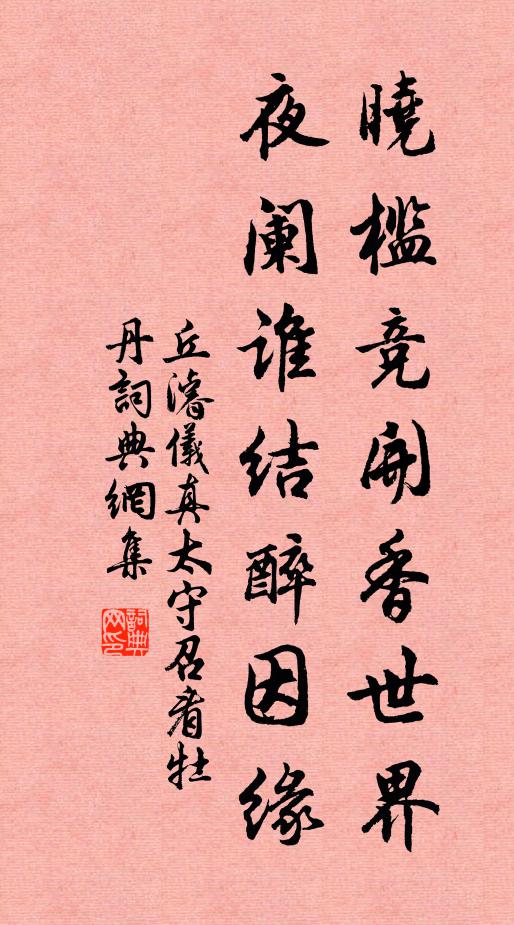 曉檻競開香世界
夜阑誰结醉因缘
丘濬儀真太守召看牡
丹詞典網集
詞典
网印